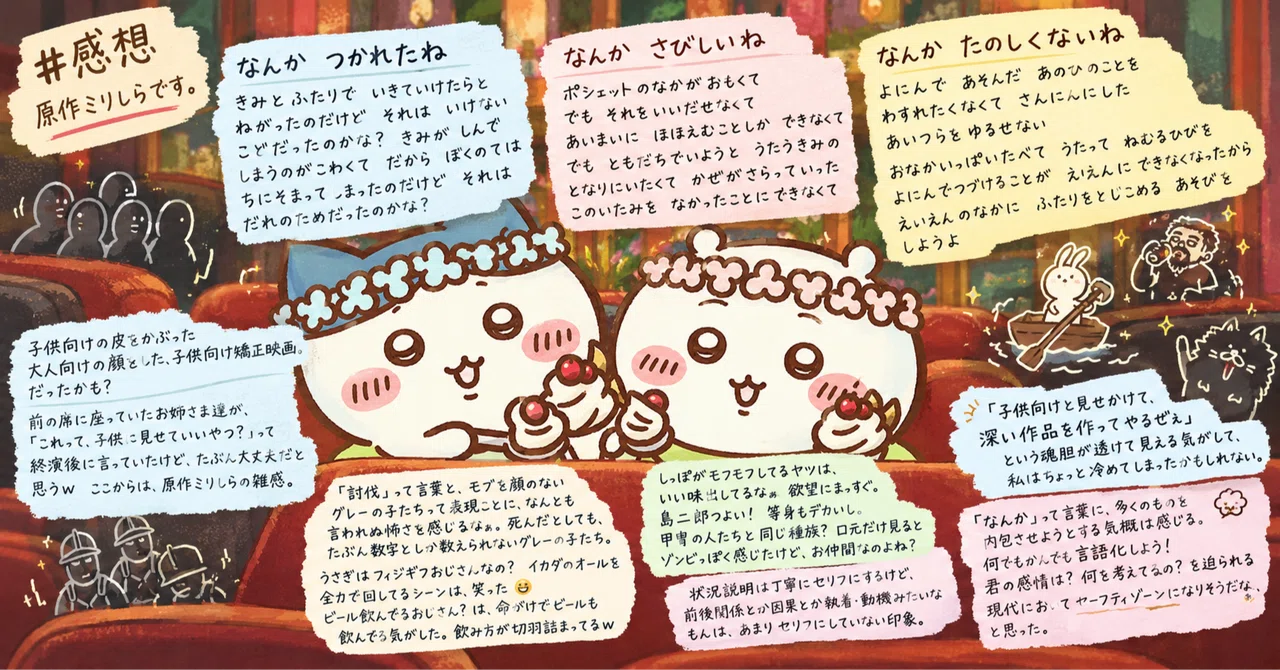 #感想
原作ミリしらです。
なんか つかれたね
きみと ふたりで いきていけたらと
ねがったのだけど それは いけない
こどだったのかな? きみが しんで
しまうのがこわくて だから ぼくのては
ちにそまって しまったのだけど それは
だれのためだったのかな?
なんか さびしいね
ポシェットのなかが おもくて
でも それをいいだせなくて
あいまいに ほほえむことしか できなくて
でも ともだちでいようと うたうきみの
となりにいたくて かぜがさらっていった
このいたみを なかったことにできなくて
なんか たのしくないね
よにんで あそんだ あのひのことを
わすれたくなくて さんにんにした
あいつらを ゆるせない
おなかいっぱいたべて うたって ねむるひびを
よにんでつづけることが えいえんに できなくなったから
えいえんのなかに ふたりをとじこめる あそびを
しようよ
子供向けの皮をかぶった
大人向けの顔をした、子供向け矯正映画。
だったかも?
前の席に座っていたお姉さま達が、
「これって、子供に見せていいやつ?」って
終演後に言っていたけど、たぶん大丈夫だと
思うw ここからは、原作ミリしらの雑感。
「討伐」って言葉と、モブを顔のない
グレーの子たちって表現ことに、なんとも
言われぬ怖さを感じるなぁ。死んだとしても、
たぶん数字としか数えられないグレーの子たち。
うさぎはフィジギフおじさんなの? イカダのオールを
全力で回してるシーンは、笑った😄
ビール飲んでるおじさん?は、命がけでビールも
飲んでる気がした。飲み方が切羽詰まってるw
しっぽがモフモフしてるヤツは、
いい味出してるなぁ 欲望にまっすぐ。
島二郎つよい! 等身もデカいし。
甲冑の人たちと同じ種族? 口元だけ見ると
ゾンビっぽく感じたけど、お仲間なのよね?
状況説明は丁寧にセリフにするけど、
前後関係とか因果とか執着・動機みたいな
もんは、あまりセリフにしていない印象。
「子供向けと見せかけて、
深い作品を作ってやるぜぇ」
という魂胆が透けて見える気がして、
私はちょっと冷めてしまったかもしれない。
「なんか」って言葉に、多くのものを
内包させようとする気概は感じる。
何でもかんでも言語化しよう!
君の感情は? 何を考えてるの? を迫られる
現代において セーフティゾーンになりそうだな、
と思った。